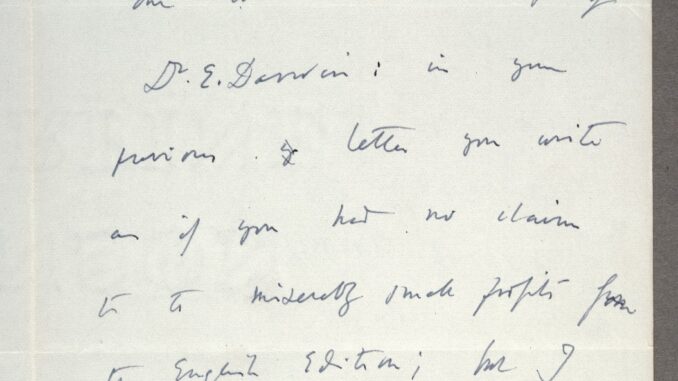 Dr. E. Darwin; in your
previous letter you write
as if you had no claim
to the miserably small profits from
the English Edition; but I